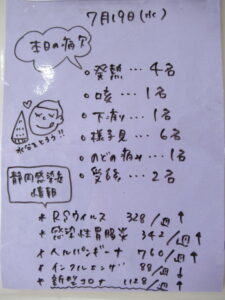 7月19日(水)
本日の病欠
○発熱…4名
○咳…1名
○下痢…1名
○様子見…6名
○のどの痛み…1名
○受診…2名
水分とろう!!
静岡感染症情報
* RSウイルス 328/週↑
* 感染性胃腸炎 342/週↑
* ヘルパンギーナ 760/週↑
* インフルエンザ 88/週↓
* 新型コロナ 1128/週↑